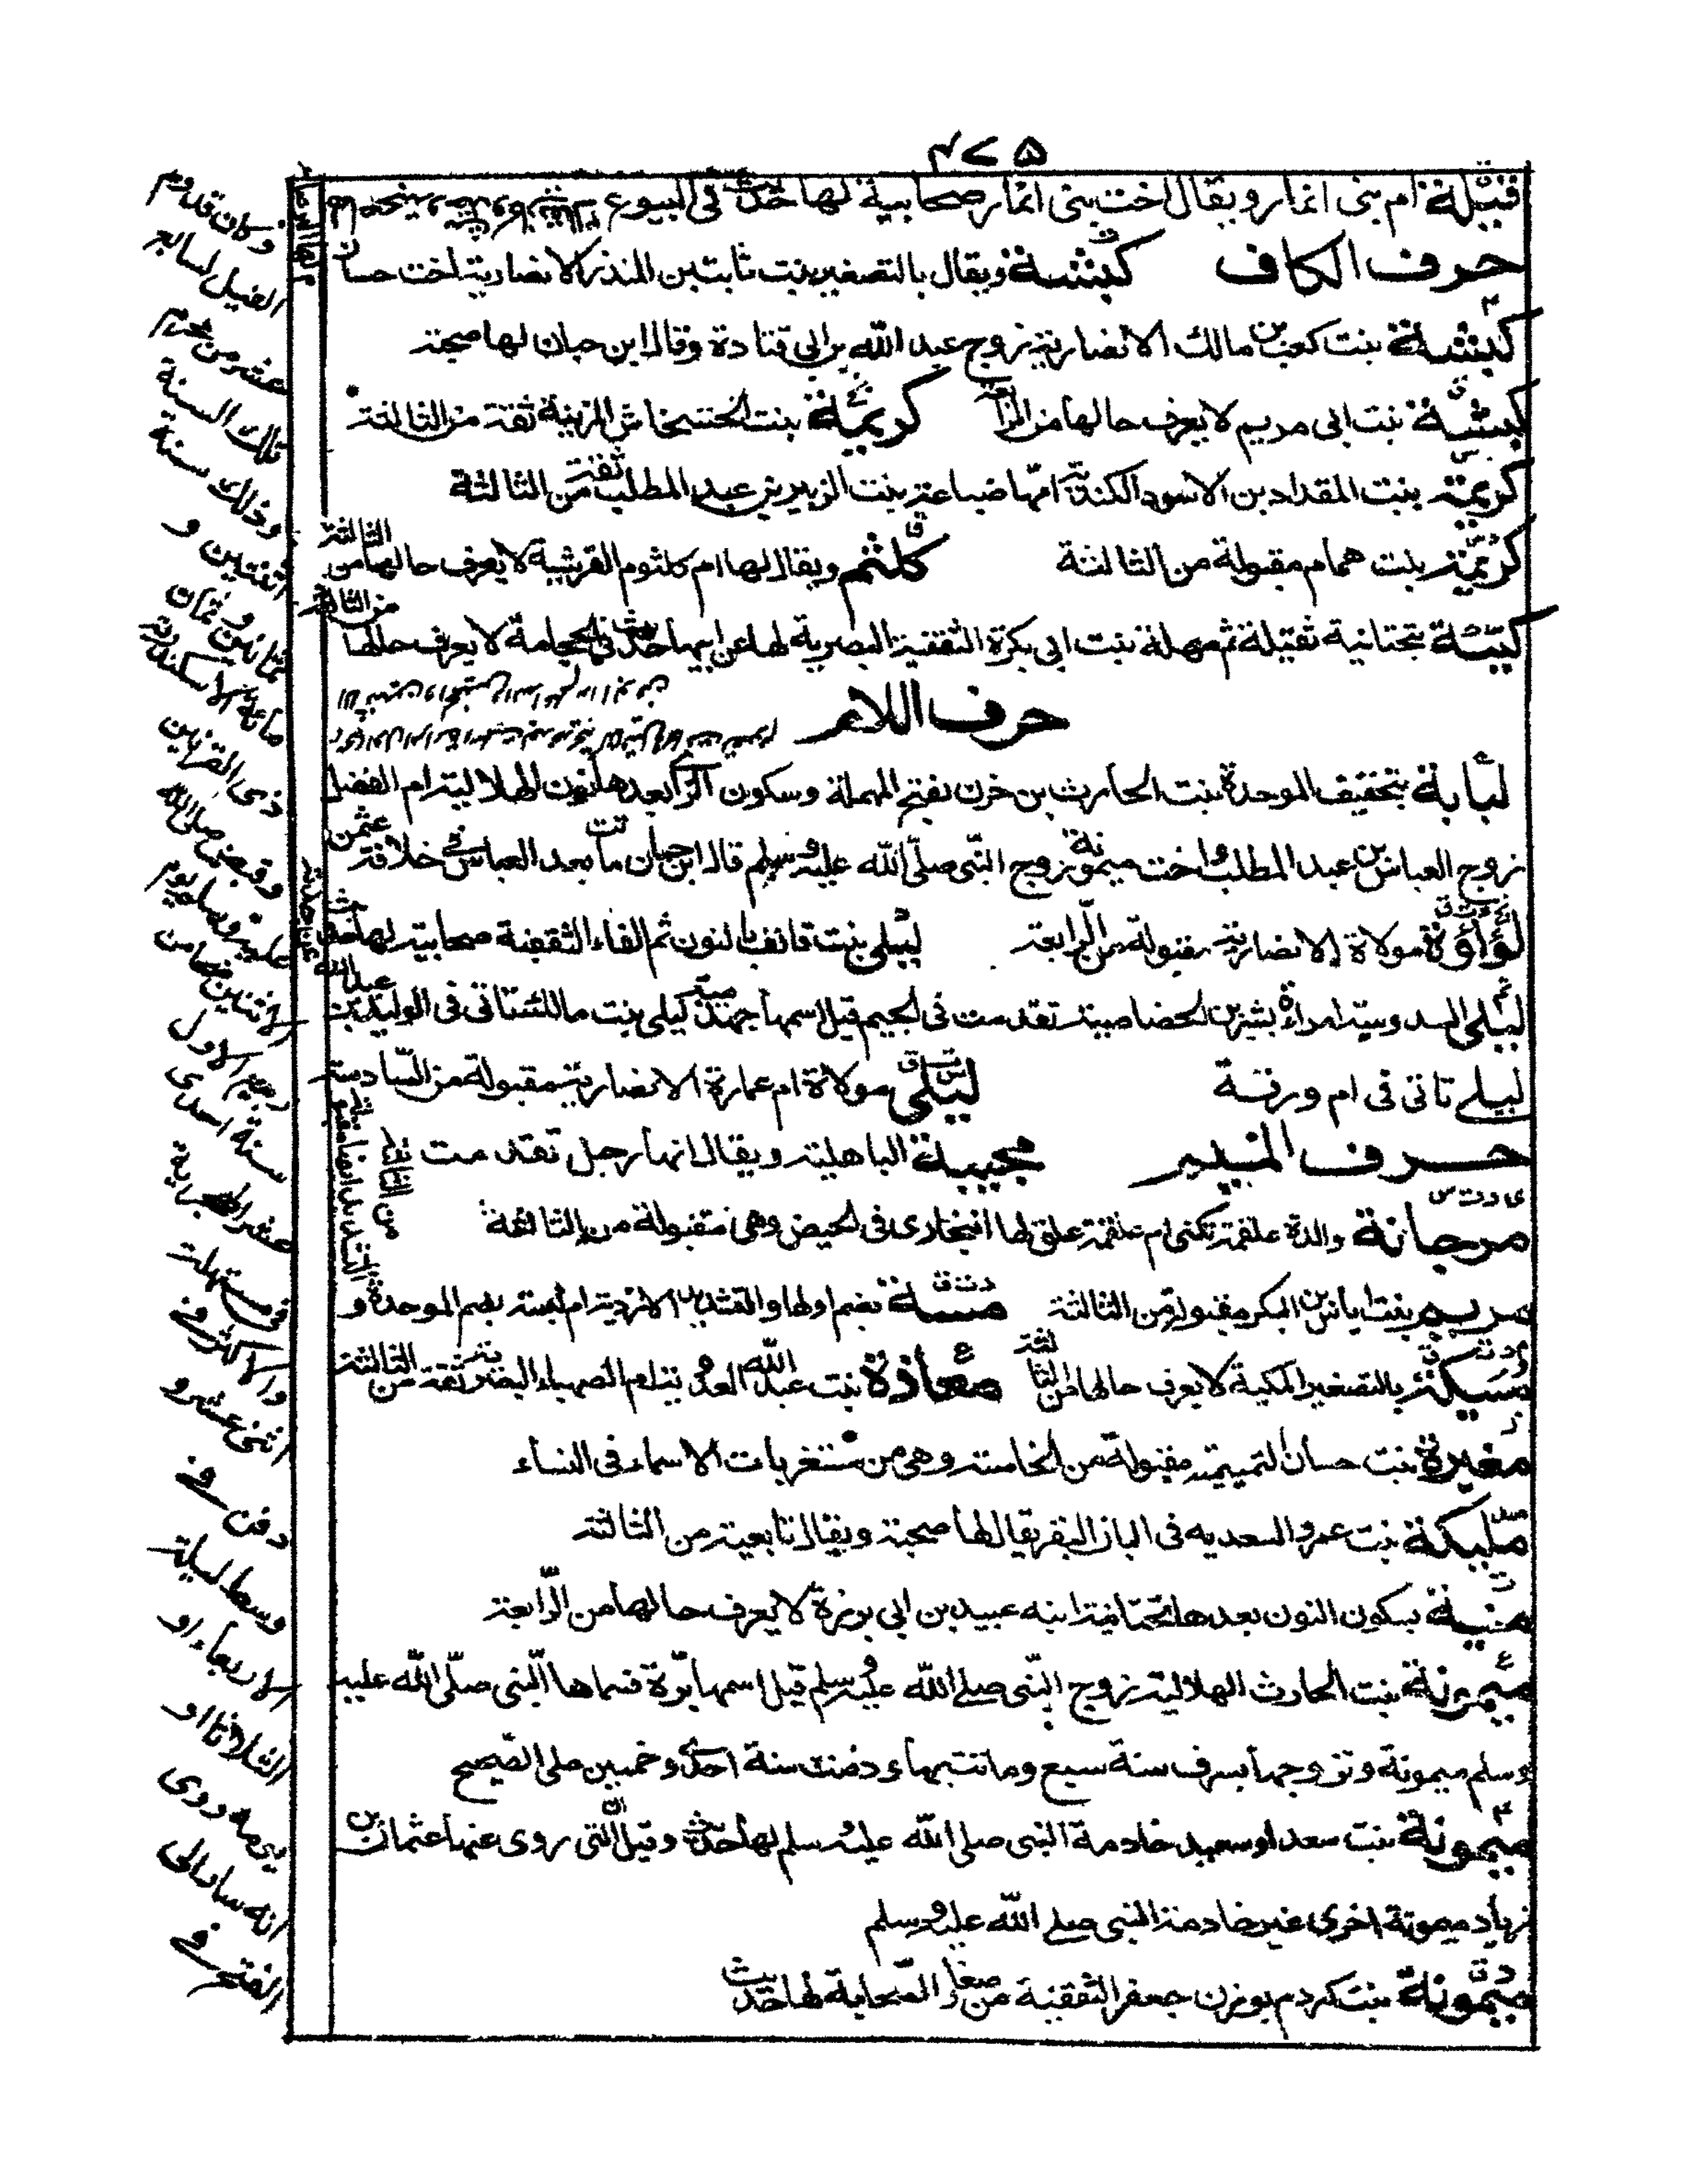 ٤٧٥
قيلة ام بنى انمار ويقال اخت بنى انمار صحابية لها حديث فى البيوع
حرف الكاف كبشة ويقال بالتصغير بنت ثابت بن المنذر الانصارية اخت حسان
كبشة بنت كعب بن مالك الانصارية زوج عبد الله بن ابى قتادة وقال ابن حبان لها صحبة
كبشة بنت ابى مريم لا يعرف حالها من الرابعة كريمة بنت الحسحاس المزنية ثقة من الثالثة
كريمة بنت المقداد بن الاسود الكندية امها ضباعة بنت الزبير بن عبد المطلب ثقة من الثالثة
كريمة بنت همام مقبولة من الثالثة كلثم ويقال لها ام كلثوم القرشية لا يعرف حالها من الثالثة
كيسة بتحتانية ثقيلة ثم مهملة بنت ابى بكرة الثقفية البصرية لها عن ابيها حديث فى الحجامة لا يعرف حالها من الثالثة
حرف اللام
لبابة بتخفيف الموحدة بنت الحارث بن حزن بفتح المهملة وسكون الزاى بعدها نون الهلالية ام الفضل
زوج العباس بن عبد المطلب واخت ميمونة زوج النبى صلى الله عليه وسلم قال ابن حبان ماتت بعد العباس فى خلافة عثمن
لؤلؤة مولاة الانصارية مقبولة من الرابعة ليلى بنت قانف بالنون ثم الفاء الثقفية صحابية لها حديث
ليلى السدوسية امراة بشير بن الخصاصية تقدمت فى الجيم قيل اسمها جهدمة ليلى بنت مالك تاتى فى الوليد بن عبد الله
ليلى تاتى فى ام ورقة ليلى مولاة ام عمارة الانصارية مقبولة من السادسة
حرف الميم مجيبة الباهلية ويقال انها رجل تقدمت
مرجانة والدة علقمة تكنى ام علقمة علق لها البخارى فى الحيض وهى مقبولة من الثالثة
مريم بنت اياس بن البكير مقبولة من الثالثة مسة بضم اولها والتشديد الازدية ام بسة بضم الموحدة و
التشديد ايضا مقبولة من الثالثة
مسيكة بالتصغير المكية لا يعرف حالها من الثالثة معاذة بنت عبد الله العدوية ام الصهباء البصرية ثقة من الثالثة
مغيرة بنت حسان التميمية مقبولة من الخامسة وهى من مستغربات الاسماء فى النساء
مليكة بنت عمرو السعديه فى البان البقر يقال لها صحبة ويقال تابعية من الثالثة
منية بسكون النون بعدها تحتانية ابنه عبيد بن ابى برزة لا يعرف حالها من الرابعة
ميمونة بنت الحارث الهلالية زوج النبى صلى الله عليه وسلم قيل اسمها برة فسماها النبى صلى الله عليه
وسلم ميمونة وتزوجها بسرف سنة سبع وماتت بها ودفنت سنة احدى وخمسين على الصحيح
ميمونة بنت سعد او سعيد خادمة النبى صلى الله عليه وسلم لها حديث وقيل ان التى روى عنها عثمان بن
زياد ميمونة اخرى غير خادمة النبى صلى الله عليه وسلم
ميمونة بنت كردم بوزن جعفر الثقفية من صغار الصحابة لها حديث
وكان قدوم
الفيل لسابع
عشر من محرم
تلك السنة
وذلك سنة
اثنتين و
ثمانين وثمان
مائة الاسكندر
ذى القرنين
وقبض صلى الله
عليه وسلم يوم
الاثنين ضحى من
ربيع الاول
سنة احدى
عشر الهجرية
فى مستهلت
والاكثر فى
اثنى عشر و
دفن فى
وسط ليلة
الاربعاء او
الثلاثا او
يومه روى
انه سار الى
الفتح فى